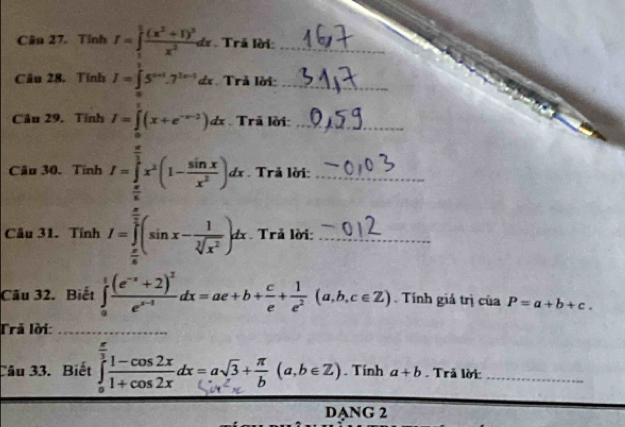 Câu 27. Tính I = ∫ (x² + 1)³ / x² dx. Trả lời: 16,7
Câu 28. Tính I = ∫ 5^(x+1).7^(2x-1) dx. Trả lời: 31,7
Câu 29. Tính I = ∫ (x + e^(-x-2)) dx. Trả lời: 0,59
Câu 30. Tính I = ∫ x²(1 - sin x / x²) dx. Trả lời: -0,03
Câu 31. Tính I = ∫ (sin x - 1 / ∛x²) dx. Trả lời: -0,2
Câu 32. Biết ∫₀¹ (e^(-x) + 2)² / e^(x-1) dx = ae + b + c/e + 1/e² (a, b, c ∈ ℤ). Tính giá trị của P = a + b + c.
Trả lời:
Câu 33. Biết ∫₀^(π/3) (1 - cos 2x) / (1 + cos 2x) dx = a√3 + π/b (a, b ∈ ℤ). Tính a + b. Trả lời:
DẠNG 2